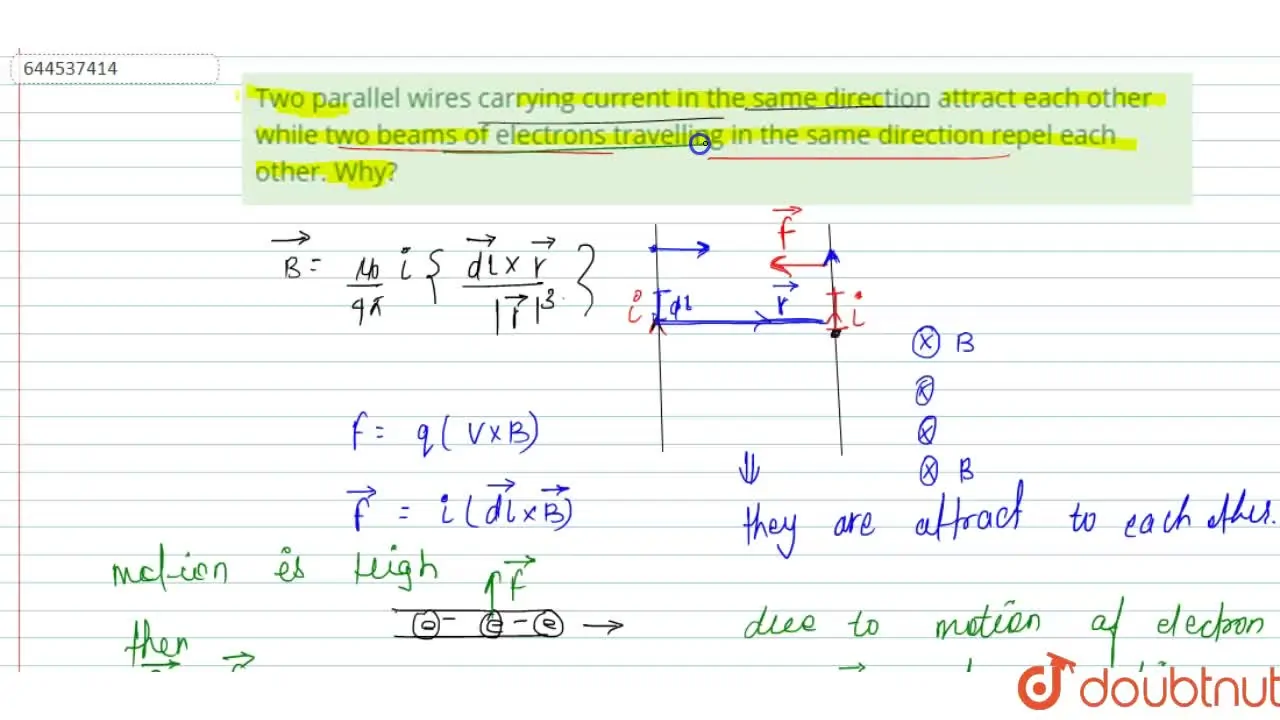 644537414
Two parallel wires carrying current in the same direction attract each other
while two beams of electrons travelling in the same direction repel each
other. Why?
B = μ0/4π i { dl × r / |r|³ }
f
i dl r i
ⓧ B
ⓧ
ⓧ
ⓧ B
f = q ( V × B )
f = i ( dl × B )
⇓
they are attract to each other.
motion is High
f
e - e - e →
then
due to motion of electron
doubtnut